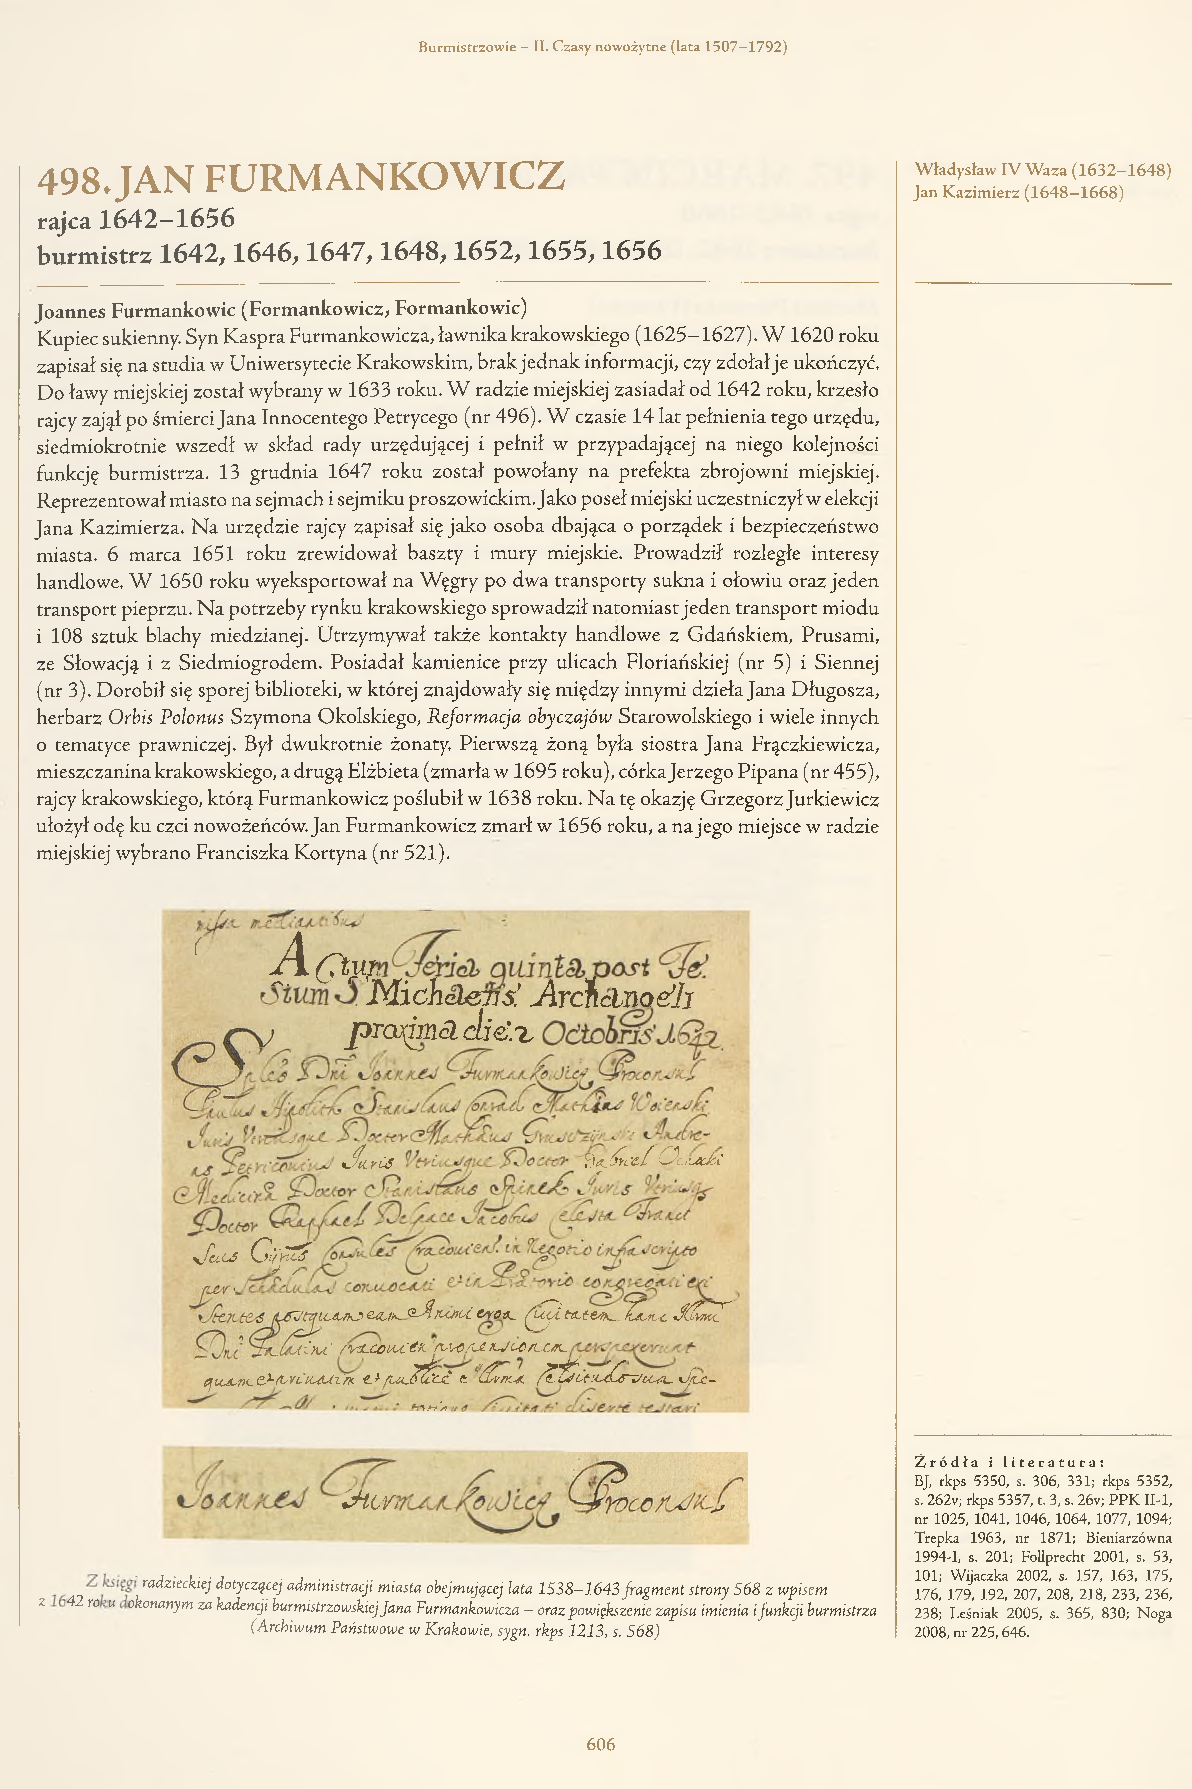 Burmistrzowie – II. Czasy nowożytne (lata 1507–1792)
498. JAN FURMANKOWICZ
rajca 1642–1656
burmistrz 1642, 1646, 1647, 1648, 1652, 1655, 1656
Władysław IV Waza (1632–1648)
Jan Kazimierz (1648–1668)
Joannes Furmankowic (Formankowicz, Formankowic)
Kupiec sukienny. Syn Kaspra Furmankowicza, ławnika krakowskiego (1625–1627). W 1620 roku
zapisał się na studia w Uniwersytecie Krakowskim, brak jednak informacji, czy zdołał je ukończyć.
Do ławy miejskiej został wybrany w 1633 roku. W radzie miejskiej zasiadał od 1642 roku, krzesło
rajcy zajął po śmierci Jana Innocentego Petrycego (nr 496). W czasie 14 lat pełnienia tego urzędu,
siedmiokrotnie wszedł w skład rady urzędującej i pełnił w przypadającej na niego kolejności
funkcję burmistrza. 13 grudnia 1647 roku został powołany na prefekta zbrojowni miejskiej.
Reprezentował miasto na sejmach i sejmiku proszowickim. Jako poseł miejski uczestniczył w elekcji
Jana Kazimierza. Na urzędzie rajcy zapisał się jako osoba dbająca o porządek i bezpieczeństwo
miasta. 6 marca 1651 roku zrewidował baszty i mury miejskie. Prowadził rozległe interesy
handlowe. W 1650 roku wyeksportował na Węgry po dwa transporty sukna i ołowiu oraz jeden
transport pieprzu. Na potrzeby rynku krakowskiego sprowadził natomiast jeden transport miodu
i 108 sztuk blachy miedzianej. Utrzymywał także kontakty handlowe z Gdańskiem, Prusami,
ze Słowacją i z Siedmiogrodem. Posiadał kamienice przy ulicach Floriańskiej (nr 5) i Siennej
(nr 3). Dorobił się sporej biblioteki, w której znajdowały się między innymi dzieła Jana Długosza,
herbarz Orbis Polonus Szymona Okolskiego, Reformacja obyczajów Starowolskiego i wiele innych
o tematyce prawniczej. Był dwukrotnie żonaty. Pierwszą żoną była siostra Jana Frączkiewicza,
mieszczanina krakowskiego, a drugą Elżbieta (zmarła w 1695 roku), córka Jerzego Pipana (nr 455),
rajcy krakowskiego, którą Furmankowicz poślubił w 1638 roku. Na tę okazję Grzegorz Jurkiewicz
ułożył odę ku czci nowożeńców. Jan Furmankowicz zmarł w 1656 roku, a na jego miejsce w radzie
miejskiej wybrano Franciszka Kortyna (nr 521).
mediantibus
Actum Feria quinta post Fe.
stum S. Michaelis Archangeli
proxima die 2 Octobris 1642.
Joannes Furmankowicz Proconsul
Paulus Stanislaus Mathias Woienski
Juris Doctor Andre-
as Petricouius Juris Vtriusque Doctor Gabriel Ochocki
Medicinae Doctor Stanislaus Juris Vtriusq
Doctor Raphael Delpace Jacobus Celesta Franci
scus Consules in Negotio infrascripto
per conuocati et in Praetorio congregati exi
stentes postquam eam Animi erga Ciuitatem hanc
Palatini propensionem perspexerunt
quam
Joannes Furmankowicz Proconsul
Z księgi radzieckiej dotyczącej administracji miasta obejmującej lata 1538–1643 fragment strony 568 z wpisem
z 1642 roku dokonanym za kadencji burmistrzowskiej Jana Furmankowicza – oraz powiększenie zapisu imienia i funkcji burmistrza
(Archiwum Państwowe w Krakowie, sygn. rkps 1213, s. 568)
Źródła i literatura:
BJ, rkps 5350, s. 306, 331; rkps 5352,
s. 262v; rkps 5357, t. 3, s. 26v; PPK II-1,
nr 1025, 1041, 1046, 1064, 1077, 1094;
Trepka 1963, nr 1871; Bieniarzówna
1994-I, s. 201; Follprecht 2001, s. 53,
101; Wijaczka 2002, s. 157, 163, 175,
176, 179, 192, 207, 208, 218, 233, 236,
238; Leśniak 2005, s. 365, 830; Noga
2008, nr 225, 646.
606